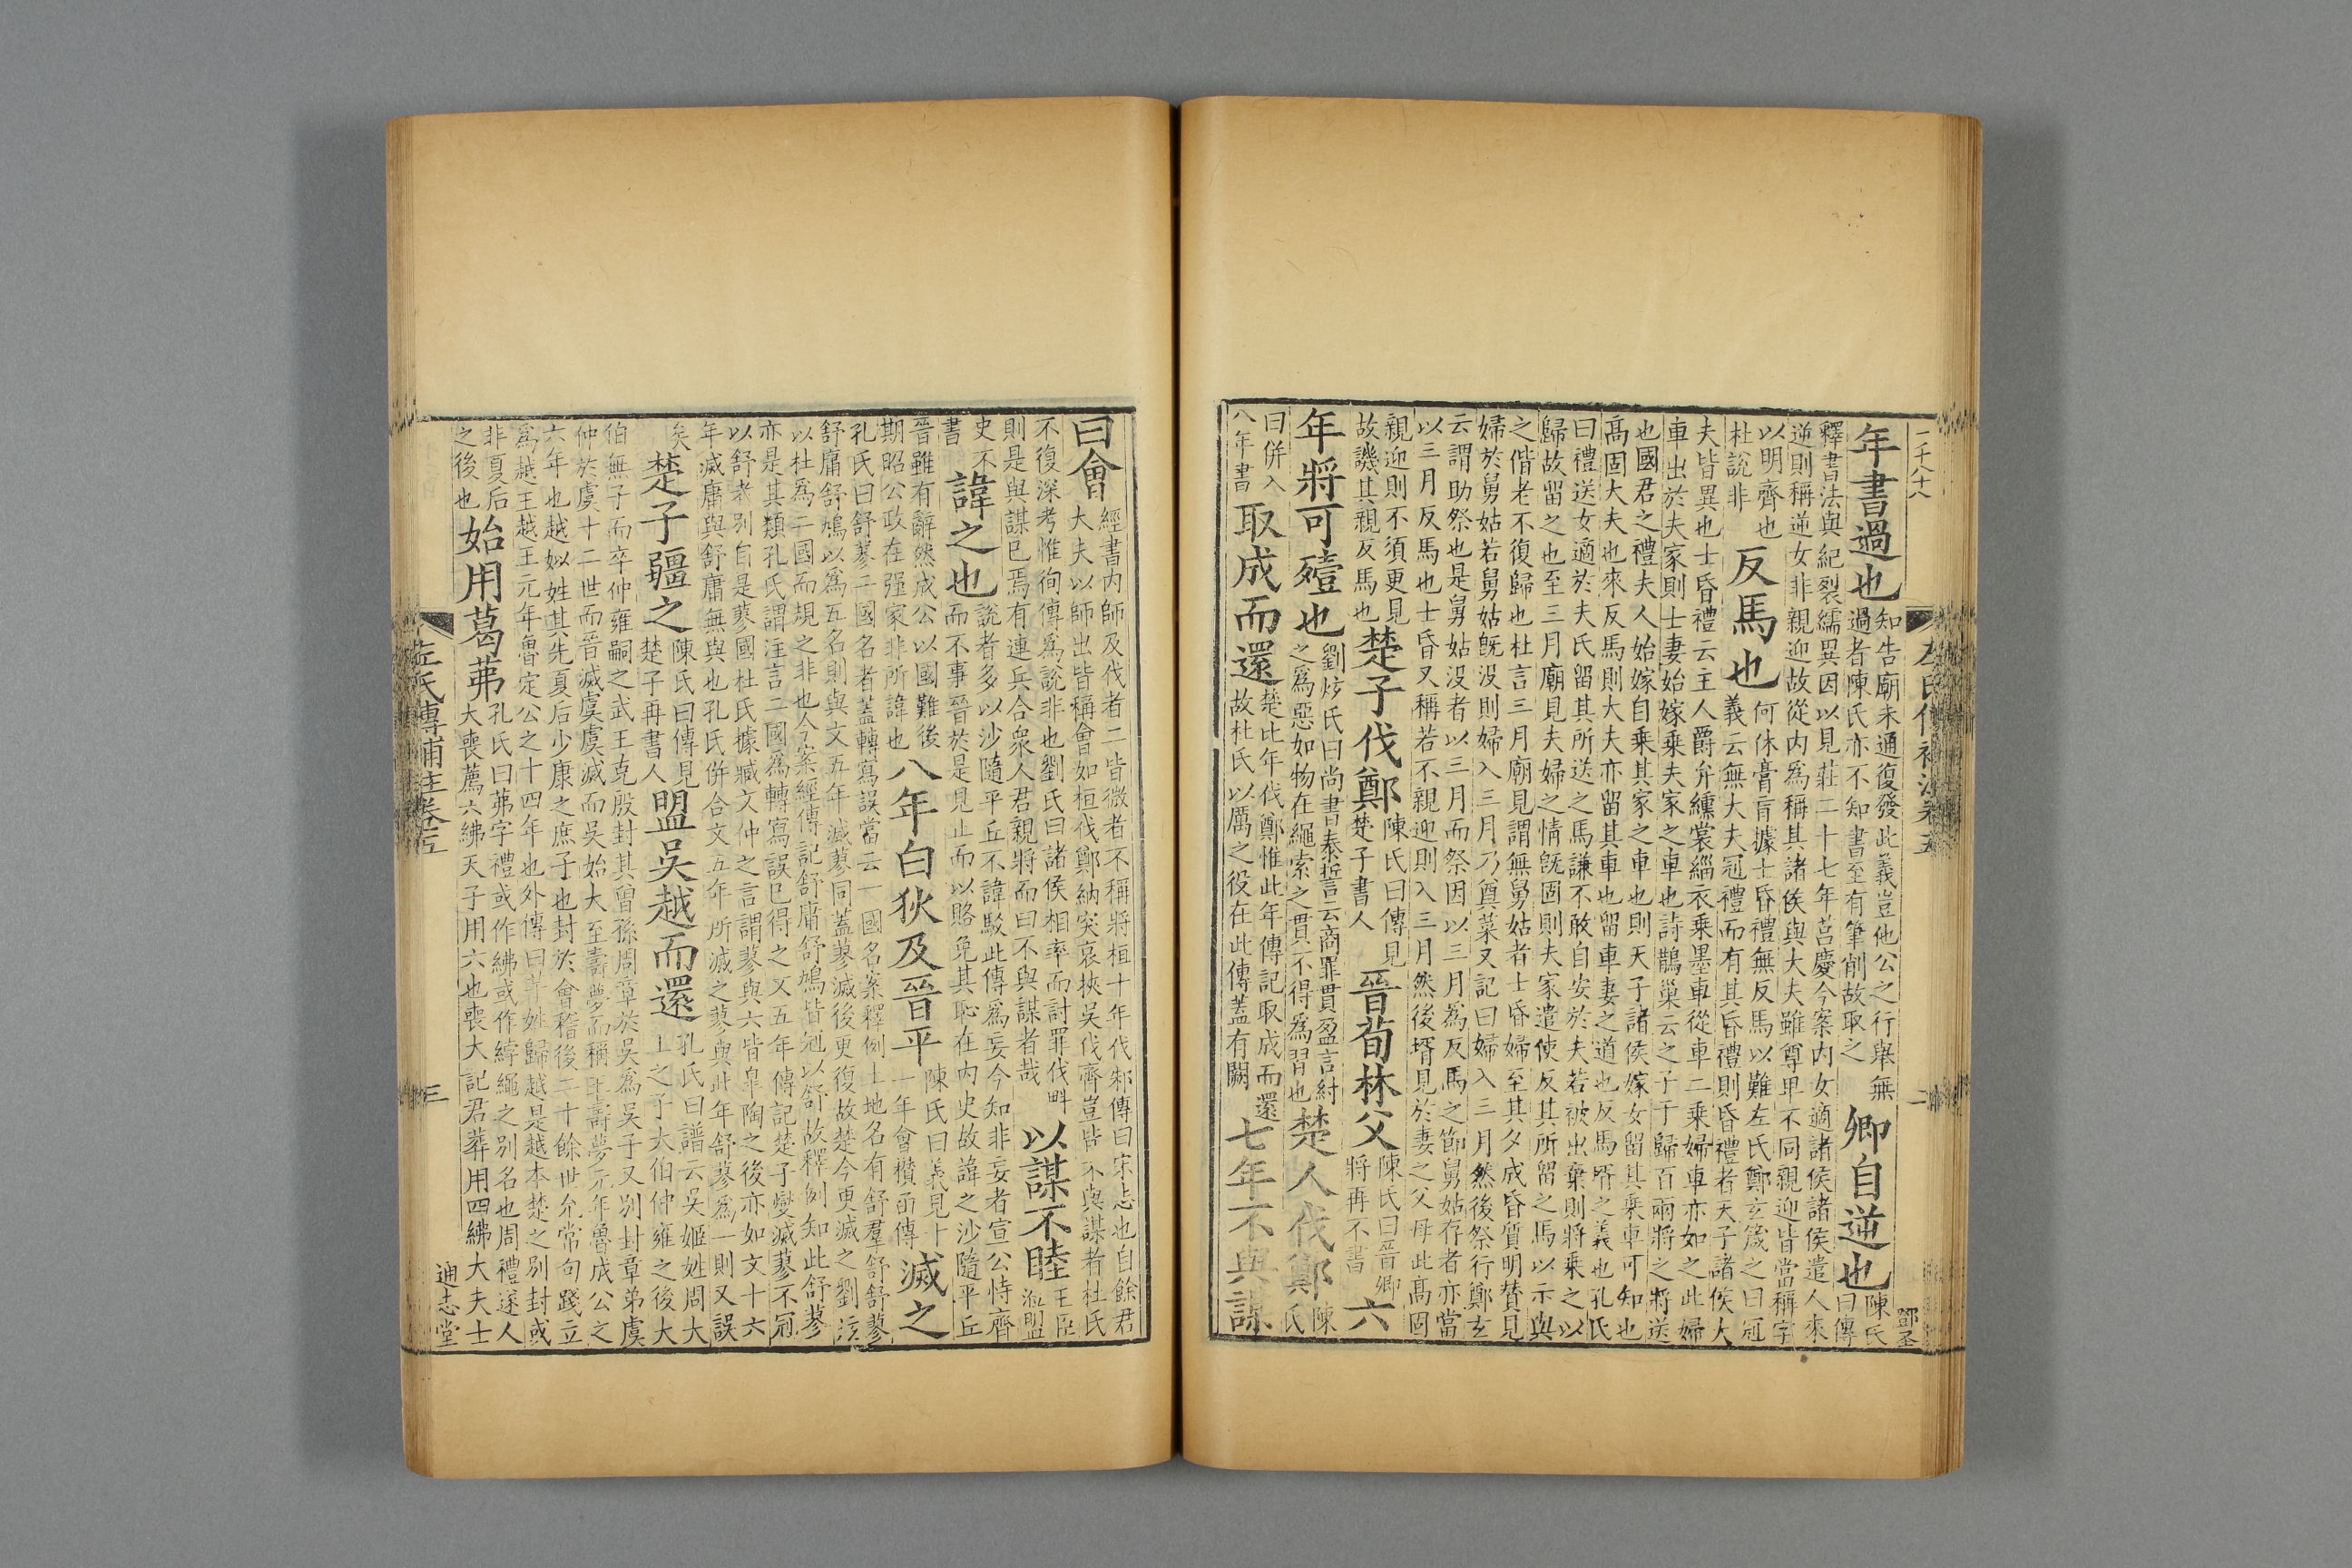 二千八十八
左氏傳補注卷五
二
鄧圣
年書過也
知告廟未通復發此義豈他公之行舉無
過者陳氏亦不知書至有筆削故取之
卿自逆也
陳氏
曰傳
釋書法與紀裂繻異因以見莊二十七年莒慶今案内女適諸侯諸侯遣人來
逆則稱逆女非親迎故從内為稱其諸侯與大夫雖尊卑不同親迎皆當稱字
以明齊也
杜説非
反馬也
何休膏肓據士昏禮無反馬以難左氏鄭玄箴之曰冠
義云無大夫冠禮而有其昏禮則昏禮者天子諸侯大
夫皆異也士昏禮云主人爵弁纁裳緇衣乘墨車從車二乘婦車亦如之此婦
車出於夫家則士妻始嫁乘夫家之車也詩鵲巢云之子于歸百兩將之將送
也國君之禮夫人始嫁自乘其家之車也則天子諸侯嫁女留其乘車可知也
高固大夫也來反馬則大夫亦留其車也留車妻之道也反馬壻之義也孔氏
曰禮送女適於夫氏留其所送之馬謙不敢自安於夫若被出棄則將乘之以
歸故留之也至三月廟見夫婦之情既固則夫家遣使反其所留之馬以示與
之偕老不復歸也杜言三月廟見謂無舅姑者士昏婦至其夕成昏質明贊見
婦於舅姑若舅姑既没則婦入三月乃奠菜又記曰婦入三月然後祭行鄭玄
云謂助祭也是舅姑没者以三月而祭因以三月為反馬之節舅姑存者亦當
以三月反馬也士昏又稱若不親迎則入三月然後壻見於妻之父母此高固
親迎則不須更見
故譏其親反馬也
楚子伐鄭
陳氏曰傳見
楚子書人
晉荀林父
陳氏曰晉卿
將再不書
六
年將可殪也
劉炫氏曰尚書泰誓云商罪貫盈言紂
之為惡如物在繩索之貫不得為習也
楚人伐鄭
陳
氏
曰併入
八年書
取成而還
楚比年伐鄭惟此年傳記取成而還
故杜氏以厲之役在此傳蓋有闕
七年不與謀
曰會
經書内師及伐者二皆微者不稱將桓十年伐邾傳曰宋志也自餘君
大夫以師出皆稱會如桓伐鄭納突哀挾吳伐齊豈皆不與謀者杜氏
不復深考惟徇傳為説非也劉氏曰諸侯相率而討罪伐畔
則是與謀已焉有連兵合衆人君親將而曰不與謀者哉
以謀不睦
王臣
涖盟
史不
書
諱之也
説者多以沙隨平丘不諱駁此傳為妄今知非妄者宣公恃齊
而不事晉於是見止而以賂免其恥在内史故諱之沙隨平丘
晉雖有辭然成公以國難後
期昭公政在强家非所諱也
八年白狄及晉平
陳氏曰義見十
一年會欑函傳
滅之
孔氏曰舒蓼二國名者蓋轉寫誤當云一國名案釋例土地名有舒羣舒舒蓼
舒庸舒鳩以為五名則與文五年滅蓼同蓋蓼滅後更復故楚今更滅之劉炫
以杜為二國而規之非也今案經傳記舒庸舒鳩皆冠以舒故釋例知此舒蓼
亦是其類孔氏謂注言二國為轉寫誤已得之又五年傳記楚子燮滅蓼不冠
以舒者別自是蓼國杜氏據臧文仲之言謂蓼與六皆皐陶之後亦如文十六
年滅庸與舒庸無與也孔氏併合文五年所滅之蓼與此年舒蓼為一則又誤
矣
楚子疆之
陳氏曰傳見
楚子再書人
盟吳越而還
孔氏曰譜云吳姬姓周大
王之子大伯仲雍之後大
伯無子而卒仲雍嗣之武王克殷封其曾孫周章於吳為吳子又別封章弟虞
仲於虞十二世而晉滅虞虞滅而吳始大至壽夢而稱王壽夢元年魯成公之
六年也越姒姓其先夏后少康之庶子也封於會稽後二十餘世允常句踐立
為越王越王元年魯定公之十四年也外傳曰芈姓歸越是越本楚之別封或
非夏后
之後也
始用葛茀
孔氏曰茀字禮或作紼或作綍繩之別名也周禮遂人
大喪薦六紼天子用六也喪大記君葬用四紼大夫士
左氏傳補注卷五
三
通志堂